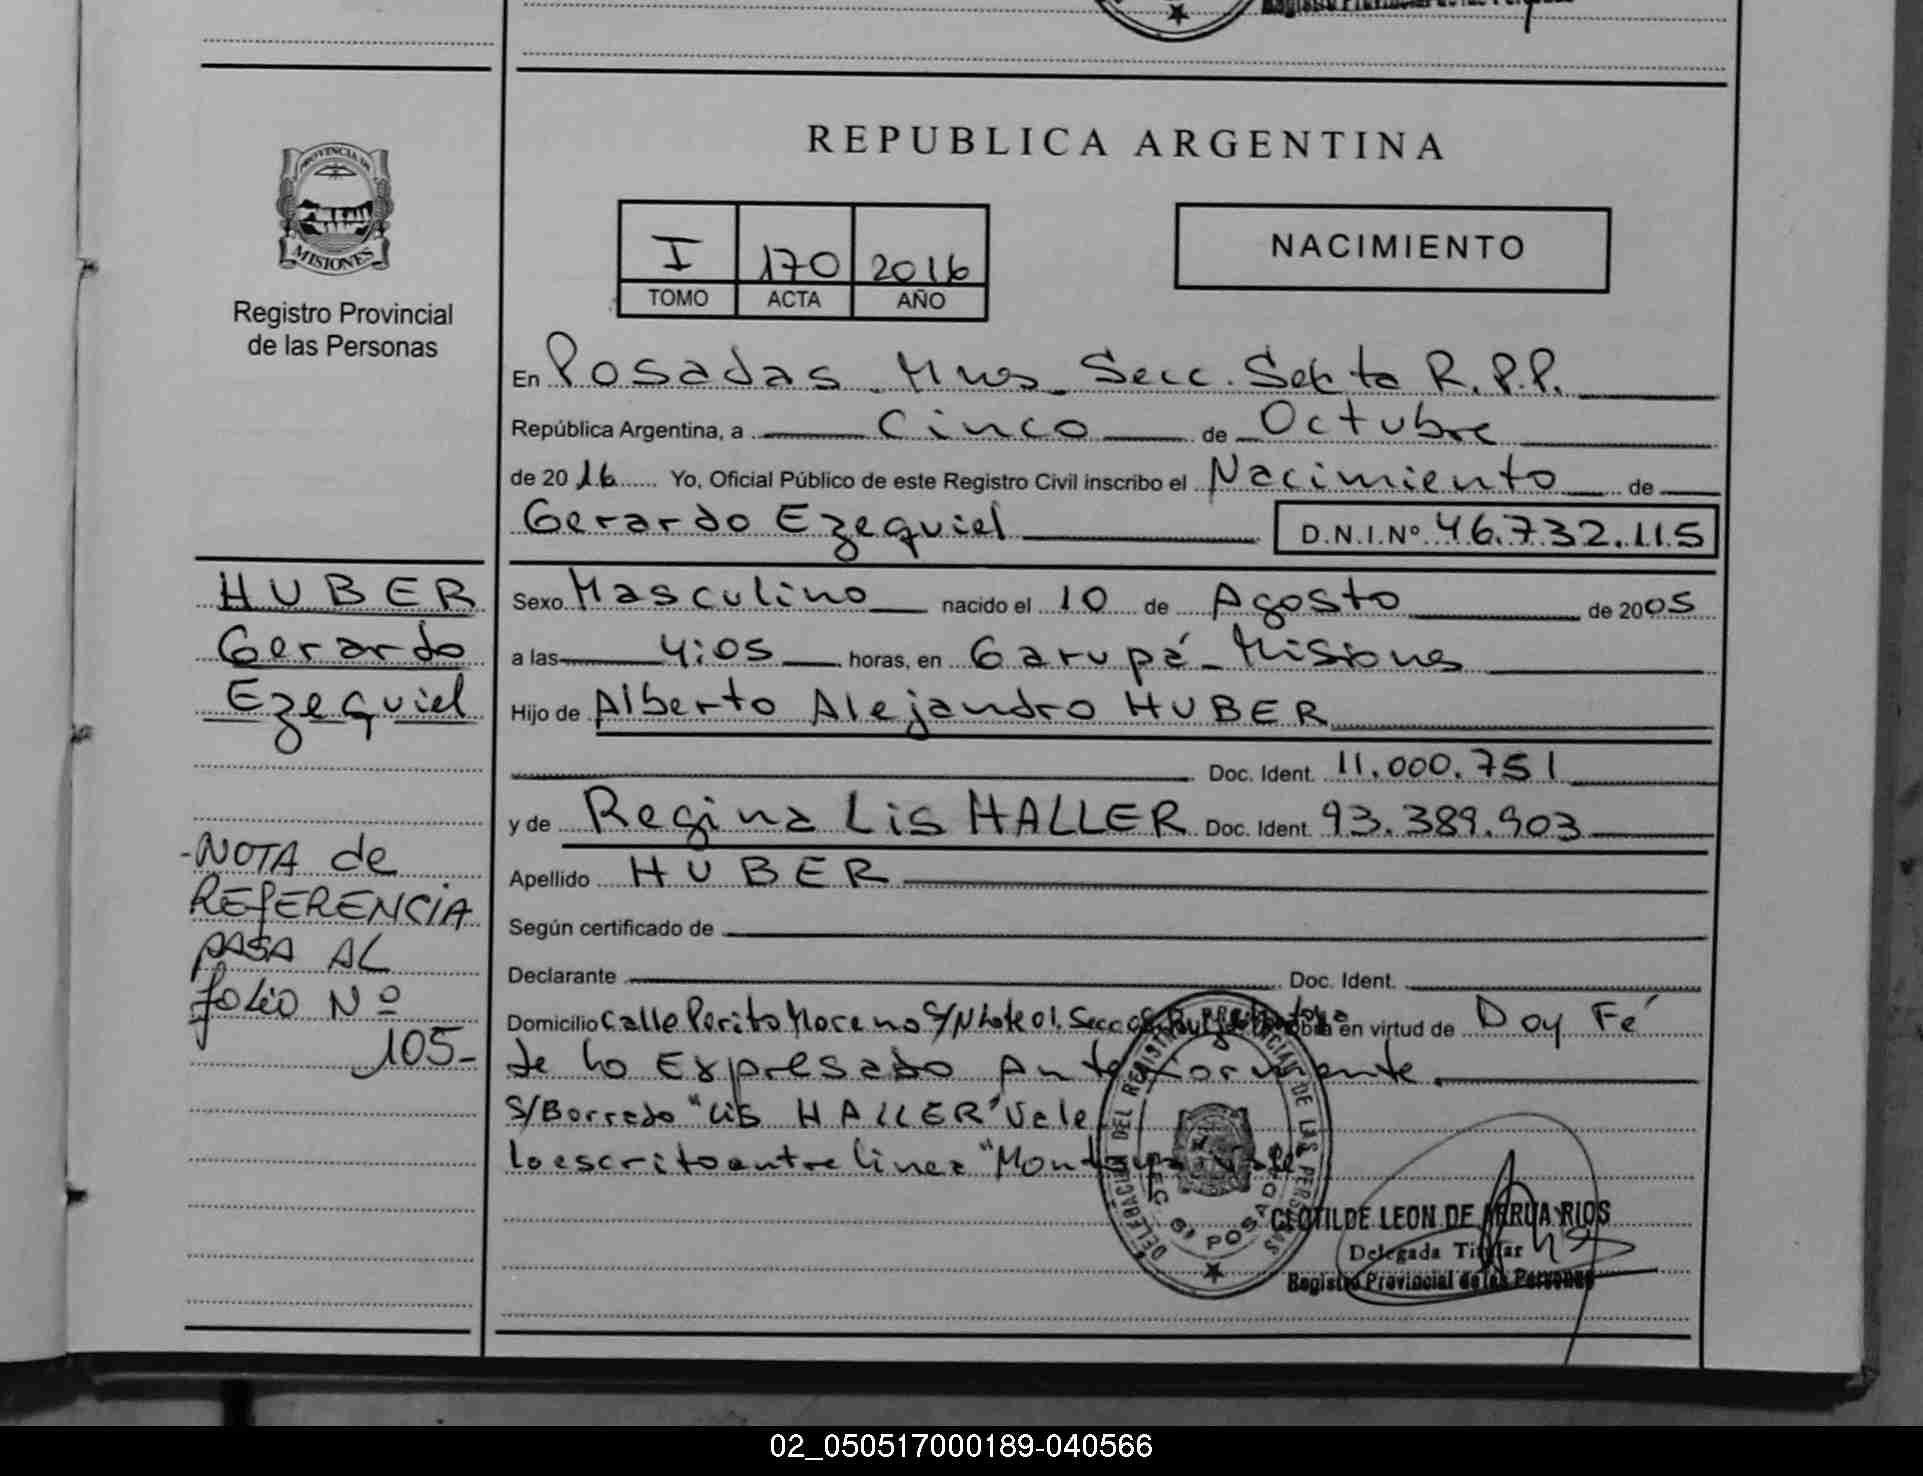 REPUBLICA ARGENTINA
PROVINCIA DE
MISIONES
Registro Provincial
de las Personas
I 170 2016
TOMO ACTA AÑO
NACIMIENTO
En Posadas Mnes Secc. Sexta R.P.P.
República Argentina, a Cinco de Octubre
de 2016 Yo, Oficial Público de este Registro Civil inscribo el Nacimiento de
Gerardo Ezequiel D.N.I.Nº 46.732.115
HUBER
Gerardo
Ezequiel
Sexo Masculino nacido el 10 de Agosto de 2005
a las 4:05 horas, en Garupá - Misiones
Hijo de Alberto Alejandro HUBER
Doc. Ident. 11.000.751
y de Regina Lis HALLER Doc. Ident. 93.389.903
Apellido HUBER
Según certificado de
Declarante Doc. Ident.
Domicilio Calle Perito Moreno S/N Lote 01. Secc en virtud de Doy Fé
de lo Expresado Anteriormente.
S/Borrado "Lis HALLER" Vale
lo escrito entre linea "Montoya" Vale
-NOTA de
REFERENCIA
PASA AL
folio Nº
105-
DELEGACION DEL REGISTRO PROVINCIAL DE LAS PERSONAS
SEC. 6ª POSADAS
CLOTILDE LEON DE ARRUA RIOS
Delegada Titular
Registro Provincial de las Personas
02_050517000189-040566